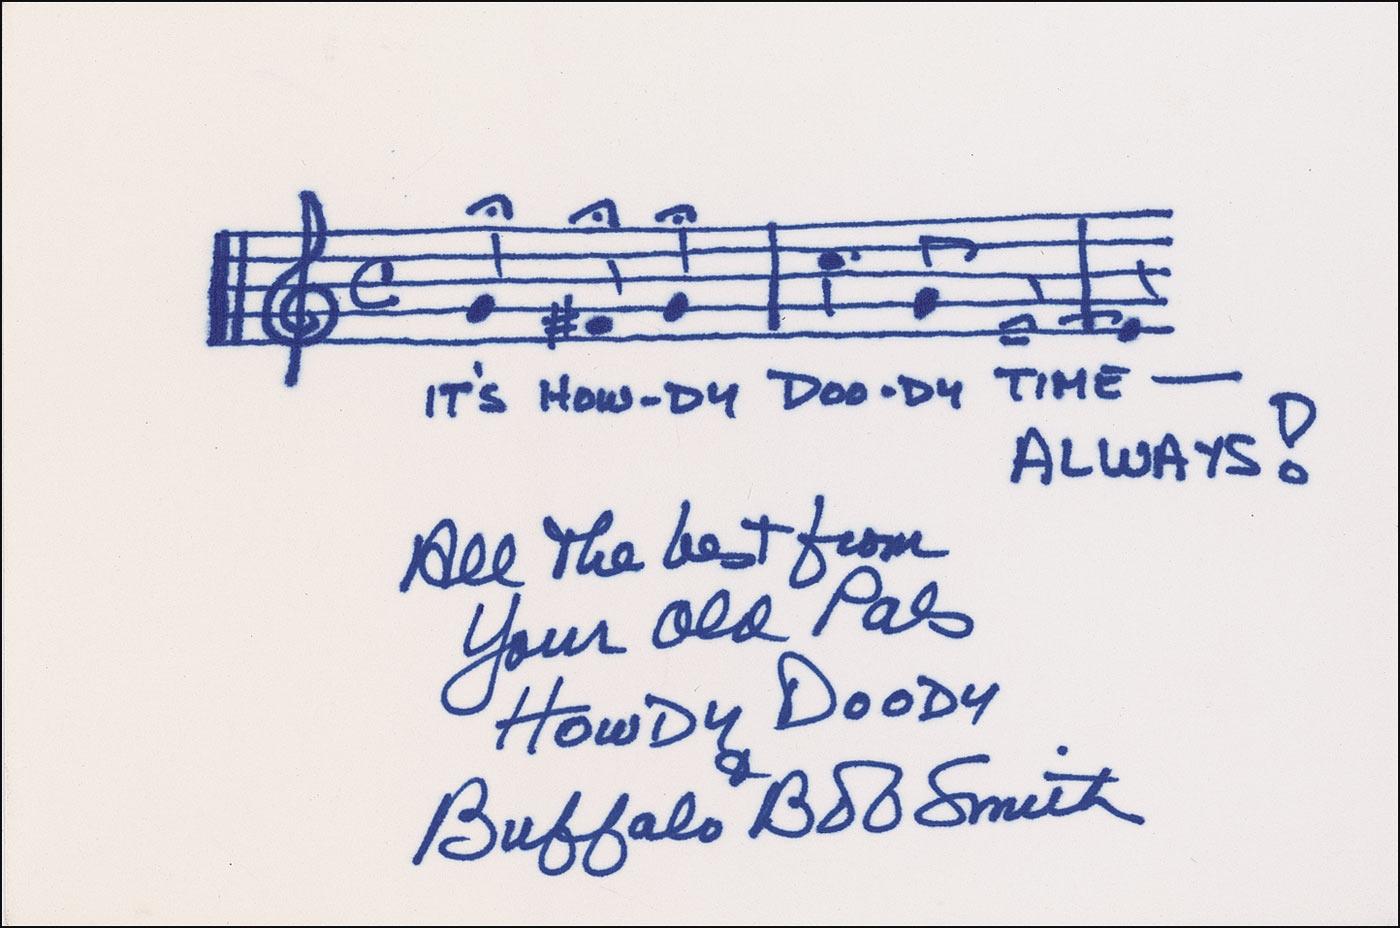 IT'S HOW-DY DOO-DY TIME —
ALWAYS!
All The best from
Your Old Pals
HOWDY DOODY
&
Buffalo Bob Smith